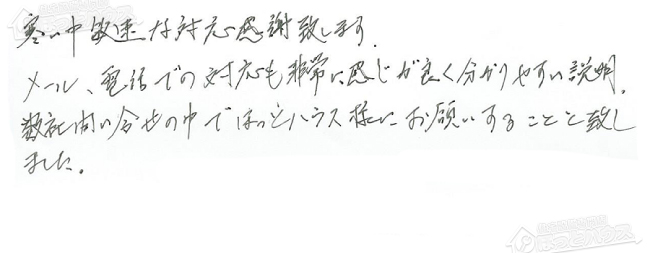 寒い中敏速な対応感謝致します.
メール、電話での対応も非常に感じが良く分かりやすい説明.
数社問い合せの中でほっとハウス様にお願いすることと致し
ました。
ほっとハウス